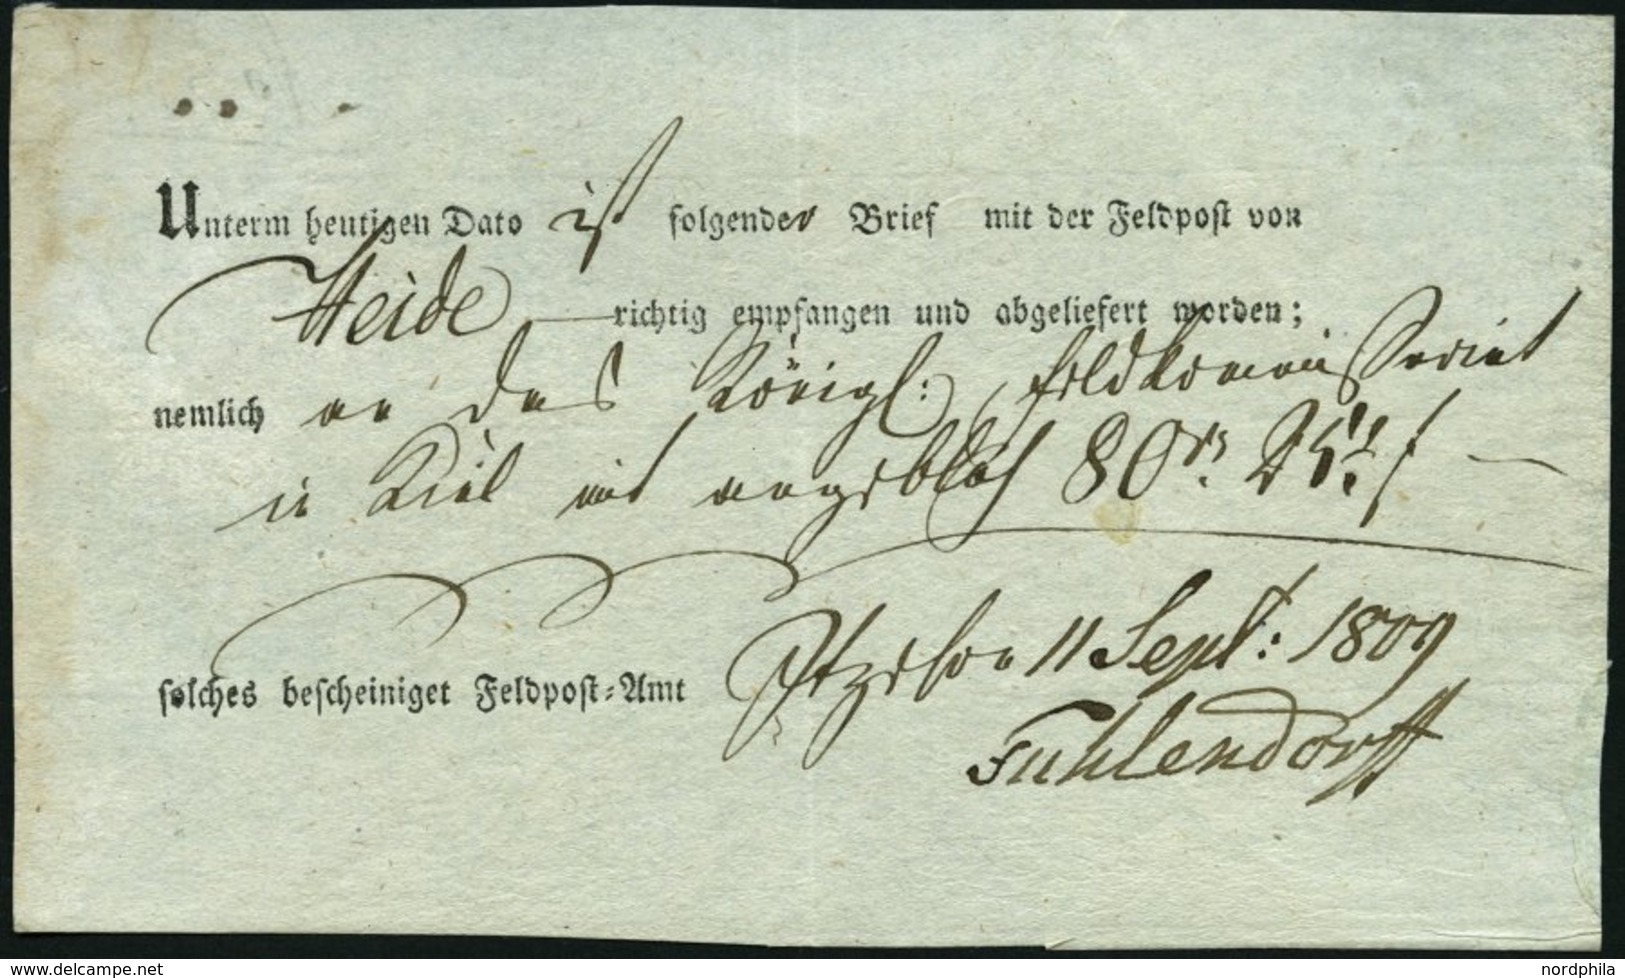 Unterm heutigen Dato ist folgender Brief mit der Feldpost von
Heide richtig empfangen und abgeliefert worden;
nemlich an das Königl: Feldkommissariat
in Kiel mit angeblich 80 rs. 25
solches bescheiniget Feldpost-Amt Itzehoe 11 Sept: 1809
Fuhlendorff
www.delcampe.net
nordphila